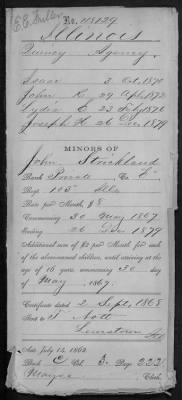 E.E. Fuller
No. 118129
Illinois
Quincy Agency.
Isaac 3 Oct. 1870
John R. 29 Apl. 1872
Lydia E. 23 Feby 1876
Joseph H. 26 Dec 1879
MINORS OF
John Strickland
Rank Private Co. "E"
Regt. 105" Ills
Rate per Month, $8
Commencing 30 May 1867
Ending 26 Dec 1879
Additional sum of $2 per Month for each
of the above-named children, until arriving at the
age of 16 years, commencing 30 day
of May 1867.
Certificate dated 2 Sept, 1868
Sent to T. Nott
Lewistown
Act July 14, 1862
Book C Vol. 3. Page 222
Clerk.